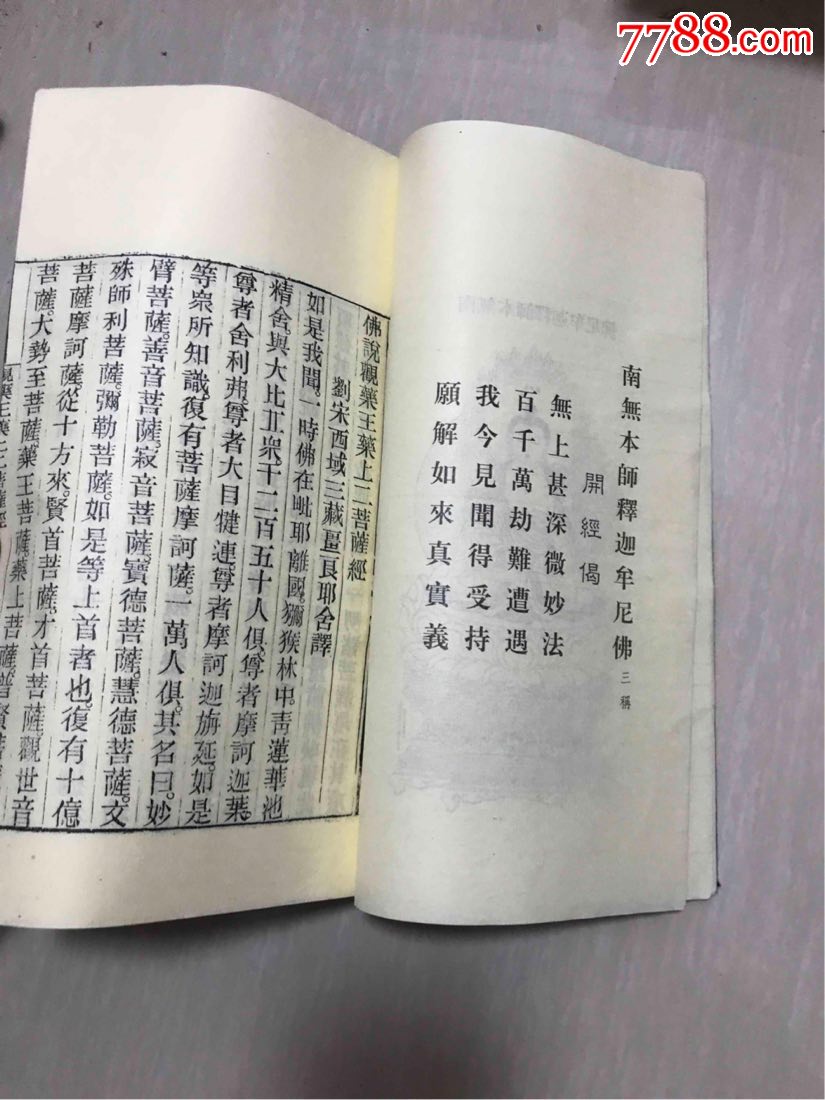 7788.com
南無本師釋迦牟尼佛三稱
開經偈
無上甚深微妙法
百千萬劫難遭遇
我今見聞得受持
願解如來真實義
佛說觀藥王藥上二菩薩經
劉宋西域三藏畺良耶舍譯
如是我聞。一時佛在毗耶離國。獼猴林中。青蓮華池
精舍。與大比丘眾。千二百五十人俱。尊者摩訶迦葉。
尊者舍利弗。尊者大目犍連。尊者摩訶迦旃延。如是
等眾所知識。復有菩薩摩訶薩。一萬人俱。其名曰。妙
臂菩薩。善音菩薩。寂音菩薩。寶德菩薩。慧德菩薩。文
殊師利菩薩。彌勒菩薩。如是等上首者也。復有十億
菩薩摩訶薩。從十方來。賢首菩薩。才首菩薩。觀世音
菩薩。大勢至菩薩。藥王菩薩。藥上菩薩。普賢菩
觀藥王藥上二菩薩經